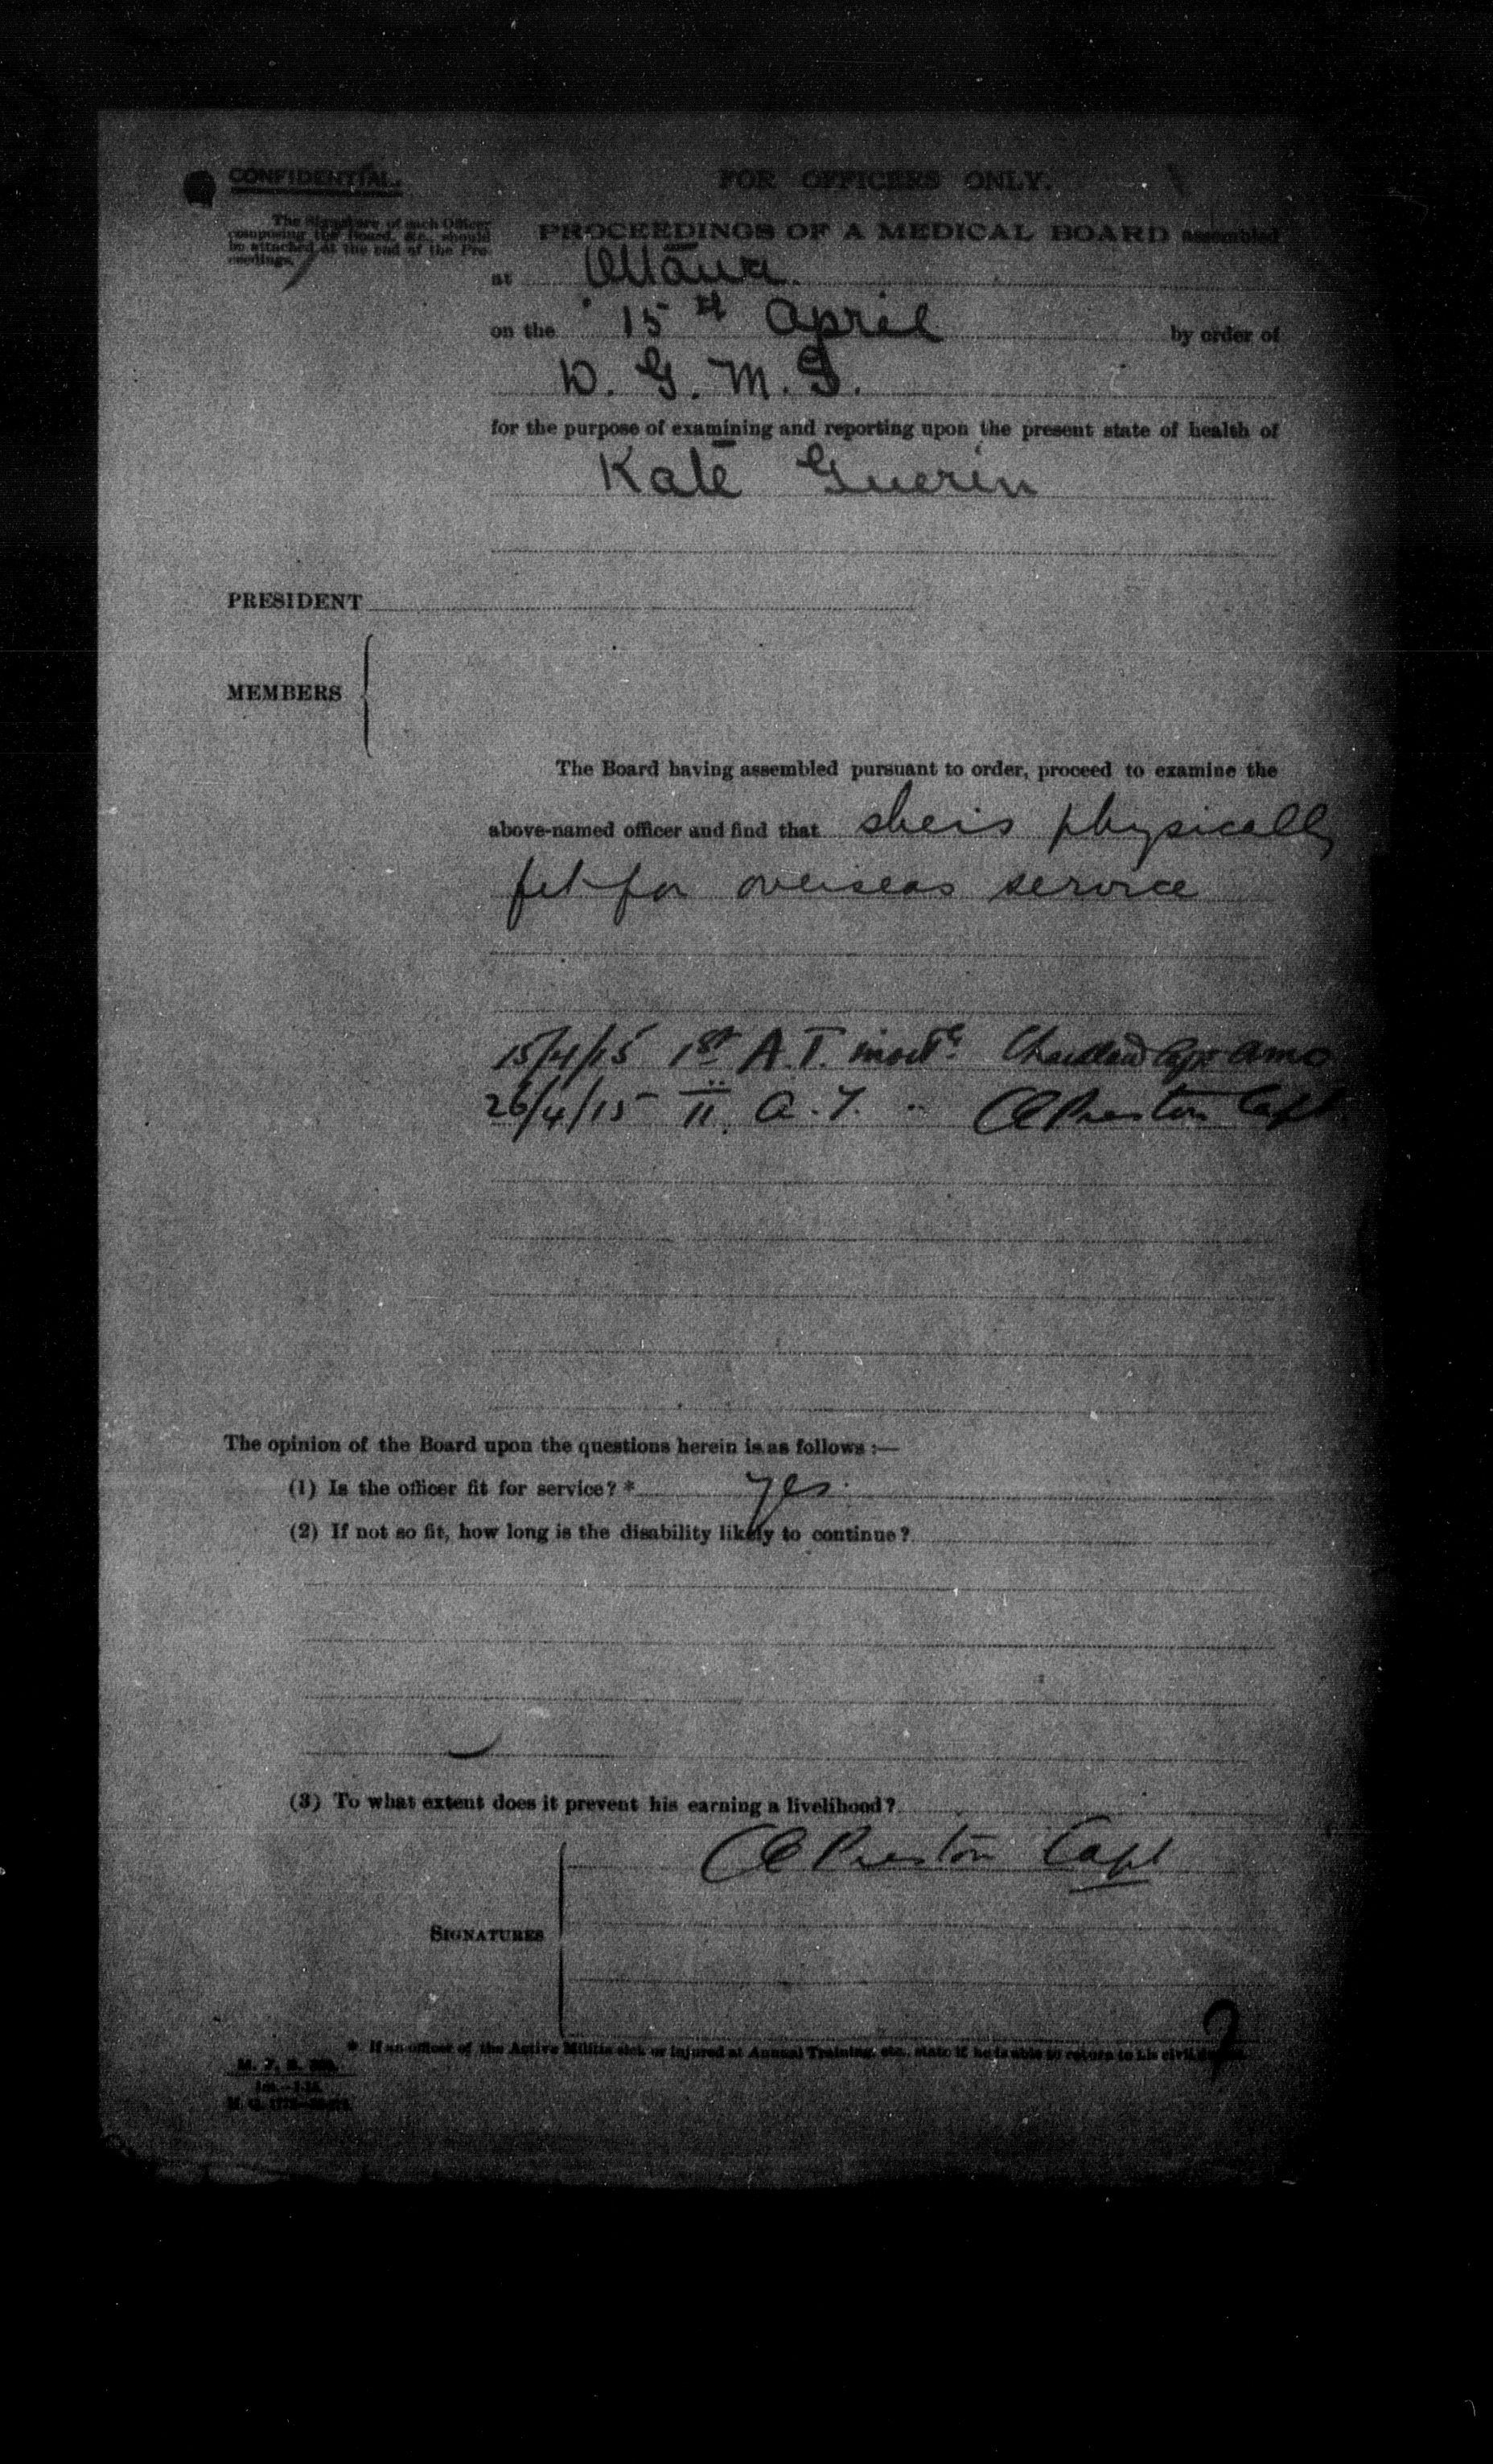 CONFIDENTIAL.
FOR OFFICERS ONLY.
The Signature of each Officer
composing the Board, &c., should
be attached at the end of the Pro-
ceedings.
PROCEEDINGS OF A MEDICAL BOARD assembled
at Ottawa.
on the 15th April by order of
D. G. M. S.
for the purpose of examining and reporting upon the present state of health of
Kate Guerin
PRESIDENT
MEMBERS
The Board having assembled pursuant to order, proceed to examine the
above-named officer and find that she is physically
fit for overseas service
15/4/15 1st A.T. Capt AMC
26/4/15 II. A.T. " CE Preston Capt
The opinion of the Board upon the questions herein is as follows :—
(1) Is the officer fit for service? * Yes.
(2) If not so fit, how long is the disability likely to continue?
(3) To what extent does it prevent his earning a livelihood?
CE Preston Capt
SIGNATURES
* If an officer of the Active Militia sick or injured at Annual Training, etc., state if he is able to return to his civil